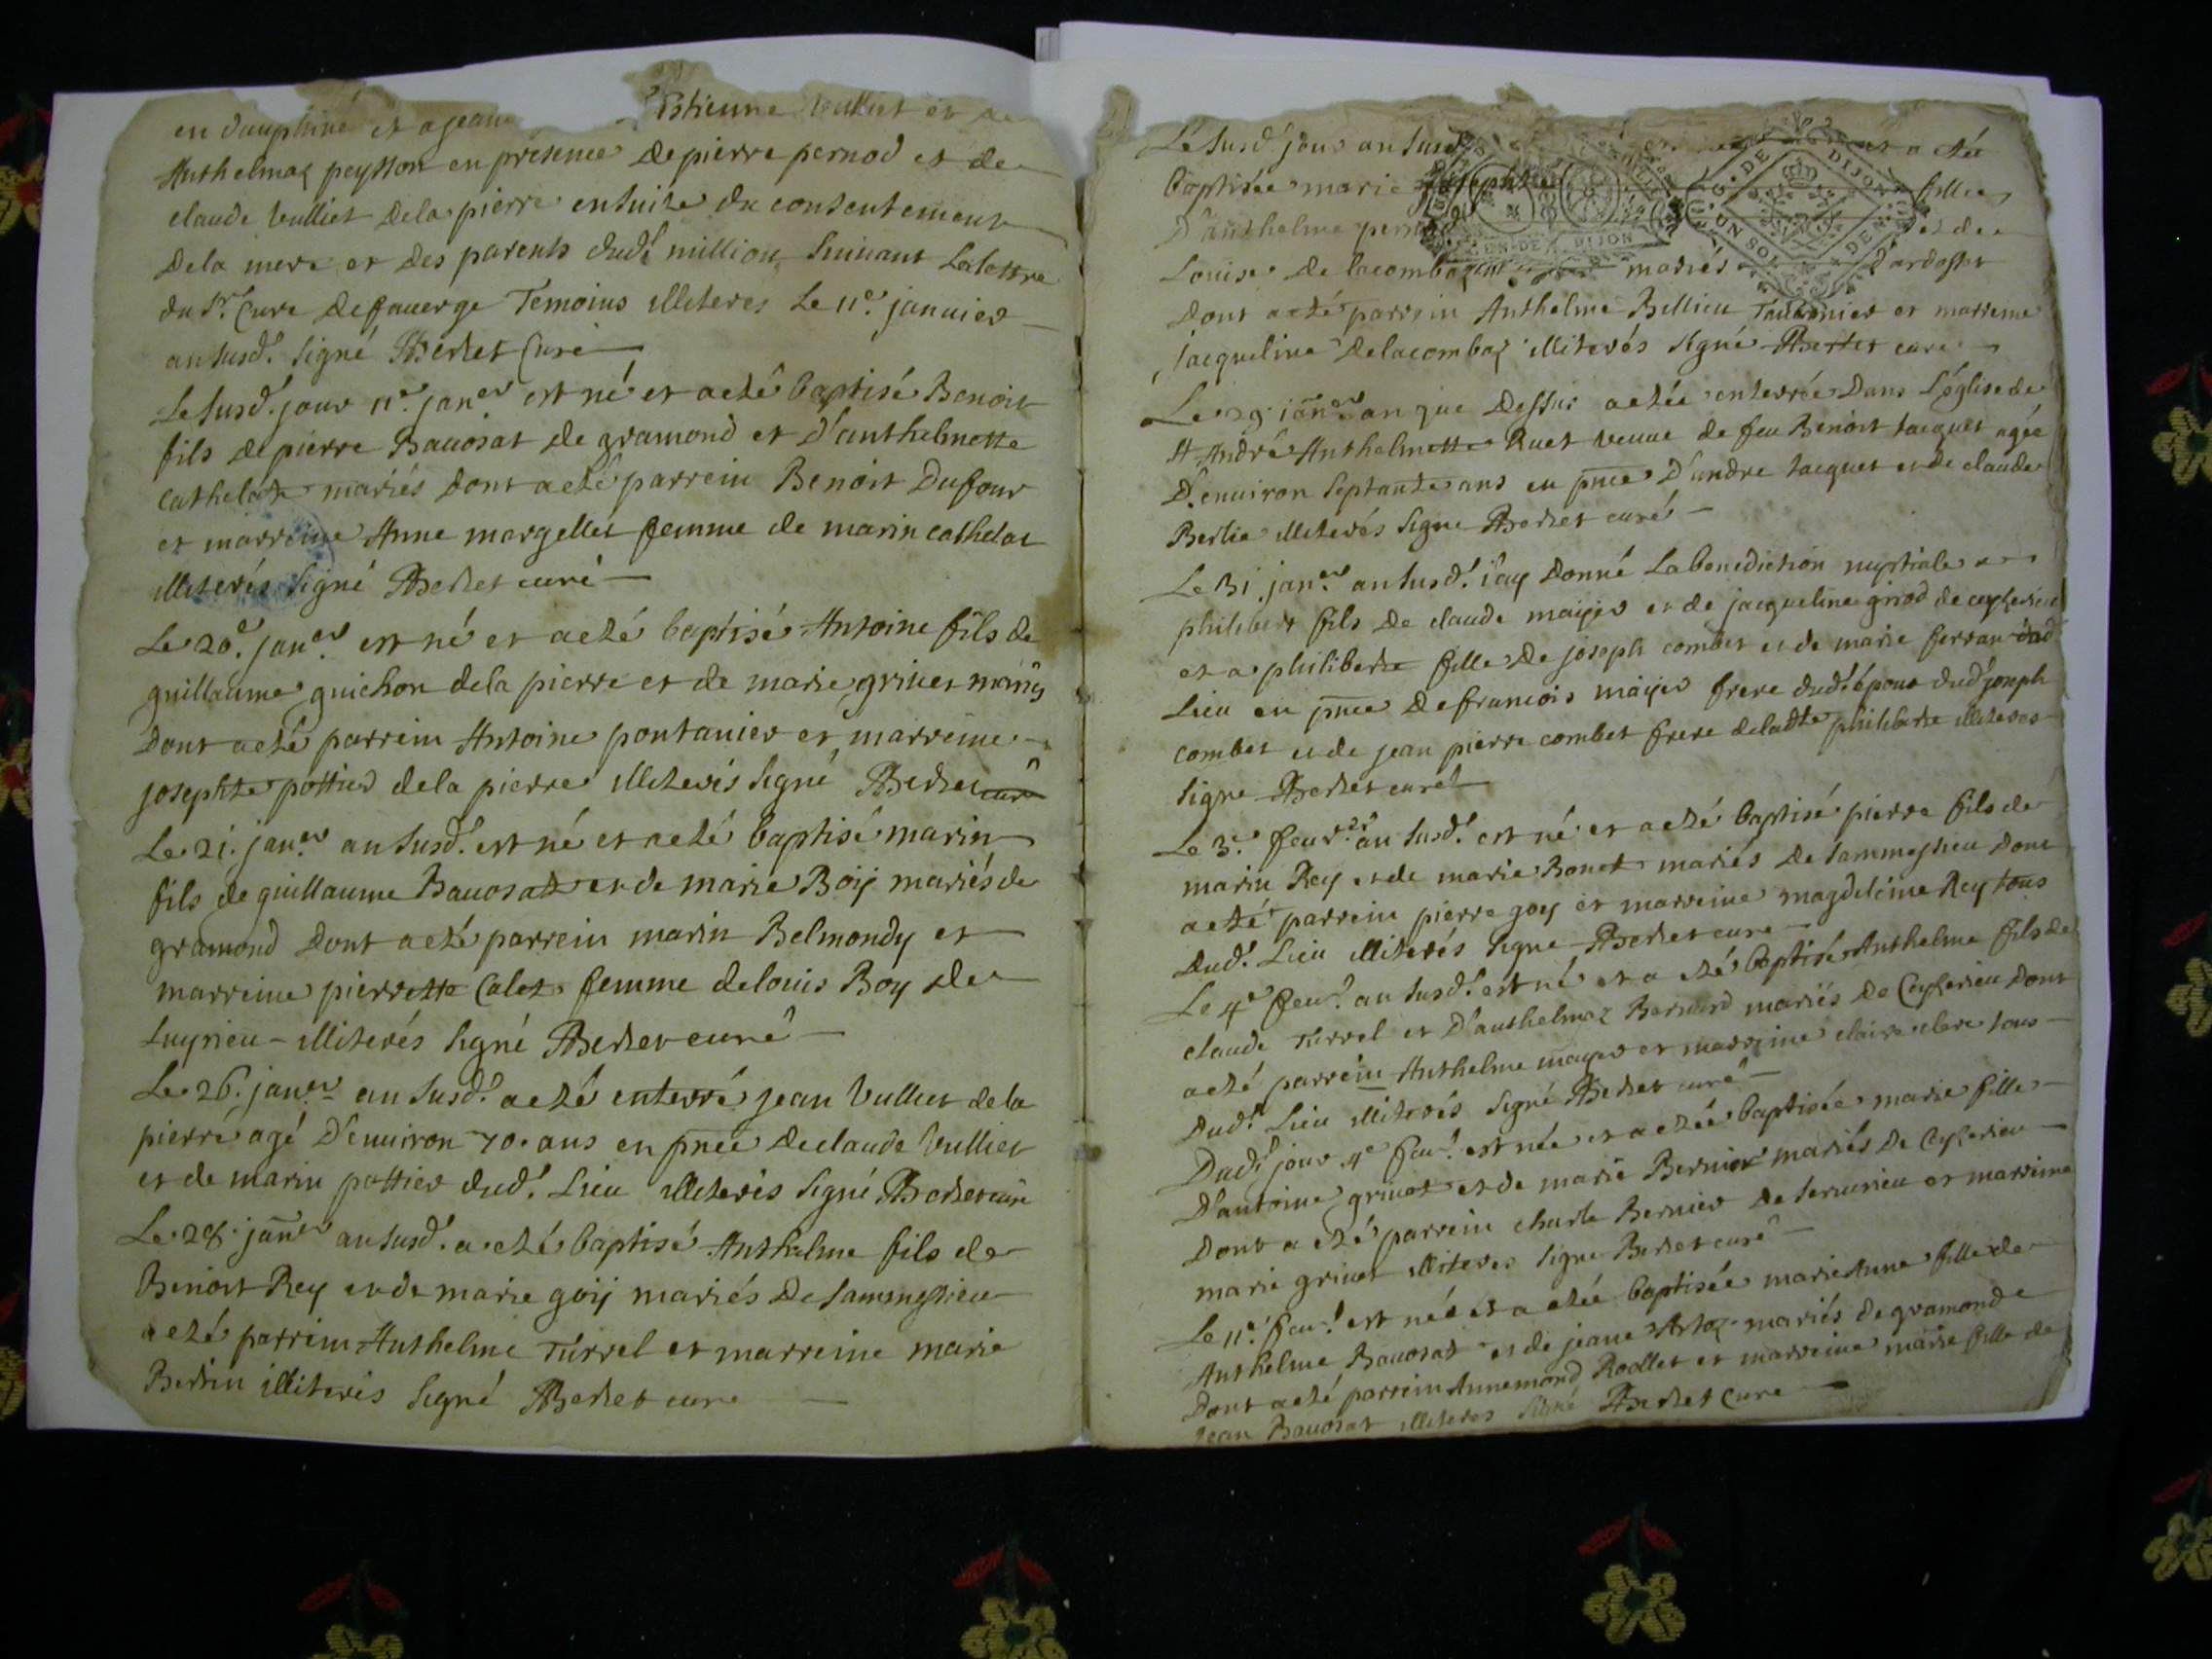 en dauphiné et a jeane Estienne Vulliet et de
Anthelmaz peysson en presence de pierre pernod et de
claude Vulliet dela pierre ensuite du consentement
dela mere et des parents dud.t million suivant la lettre
du S.r Curé de faverge Temoins illiteres le 11.e janvier
an susd.t signé Bertet Curé
Le susd.t jour 11.e jan.er est né et a eté baptisé Benoit
fils de pierre Bavosat de gramond et d'anthelmette
cathelat mariés dont a eté parrein Benoit Dufour
et marreine Anne margellet femme de marin cathelat
illiterés signé Bertet curé
Le 20.e jan.er est né et a eté baptisé Antoine fils de
guillaume guichon dela pierre et de marie grivet mariés
dont a eté parrein Antoine pontanier et marreine
josephte pottier dela pierre illiterés signé Bertet curé
Le 21. jan.er an susd.t est né et a eté baptisé marin
fils de guillaume Bavosat et de marie Boÿ mariés de
gramond dont a eté parrein marin Belmondy et
marreine pierrette Calet femme de louis Boy de
Luyrieu - illiterés signé Bertet curé
Le 26. jan.er an susd.t a eté enterré jean Vulliet dela
pierre agé d'environ 70. ans en pnce de claude Vulliet
et de marin pottier dud.t Lieu illiterés signé Bertet curé
Le 28. jan.er an susd.t a eté baptisé Anthelme fils de
Benoit Rey et de marie goÿ mariés de sammessieu
a eté parrein Anthelme Turrel et marreine marie
Bertin illiterés signé Bertet curé
Le susd.t jour an susd a eté
baptisée marie josephte fille
d'anthelme et de
Louise de lacombaz mariés d'ardosset
dont a eté parrein Anthelme Billieu et marreine
jacqueline delacombaz illiterés signé Bertet curé
Le 29. jan.er an que dessus a etée enterrée dans l'église de
St André Anthelmette Ruet veuve de feu Benoit Jacquet agée
d'environ septante ans en pnce d'andre Jacquet et de claude
Berlie illiterés signe Bertet curé
Le 31. jan.er an susd.t i'ay donné la benediction nuptiale a
philibert fils de claude maijer et de jacqueline griod de ceyzerieu
et a philiberte fille de joseph combet et de marie ferran dud
Lieu en pnce de francois maijer frere dud.t époux dud joseph
combet et de jean pierre combet frere de ladte philiberte illiteres
signe Bertet curé
Le 3.e fevr.er an susd.t est né et a eté baptisé pierre fils de
marin Rey et de marie Bonet mariés de sammessieu dont
a eté parrein pierre goy et marreine magdeleine Rey tous
dud.t Lieu illiterés signe Bertet curé
Le 4.e fev.r an susd.t est né et a eté baptisé Anthelme fils de
claude Turrel et d'anthelmaz Bernard mariés de Ceyzerieu dont
a eté parrein Anthelme mayer et marreine claire clere tous
dud.t Lieu illiterés signé Bertet curé
Dud.t jour 4.e fev.r est née et a etée baptisée marie fille
d'antoine grivet et de marie Bernier mariés de Ceyzerieu
dont a eté parrein charle Bernier de servrieu et marreine
marie grivet illiteres signe Bertet curé
Le 11.e fev.r est née et a etée baptisée marie Anne fille de
Anthelme Bavosat et de jeane Artoz mariés de gramond
dont a eté parrein Annemond Rodlet et marreine marie fille de
jean Bavosat illiteres signé Bertet Curé
G. DE DIJON
UN SOL
GEN. DE DIJON